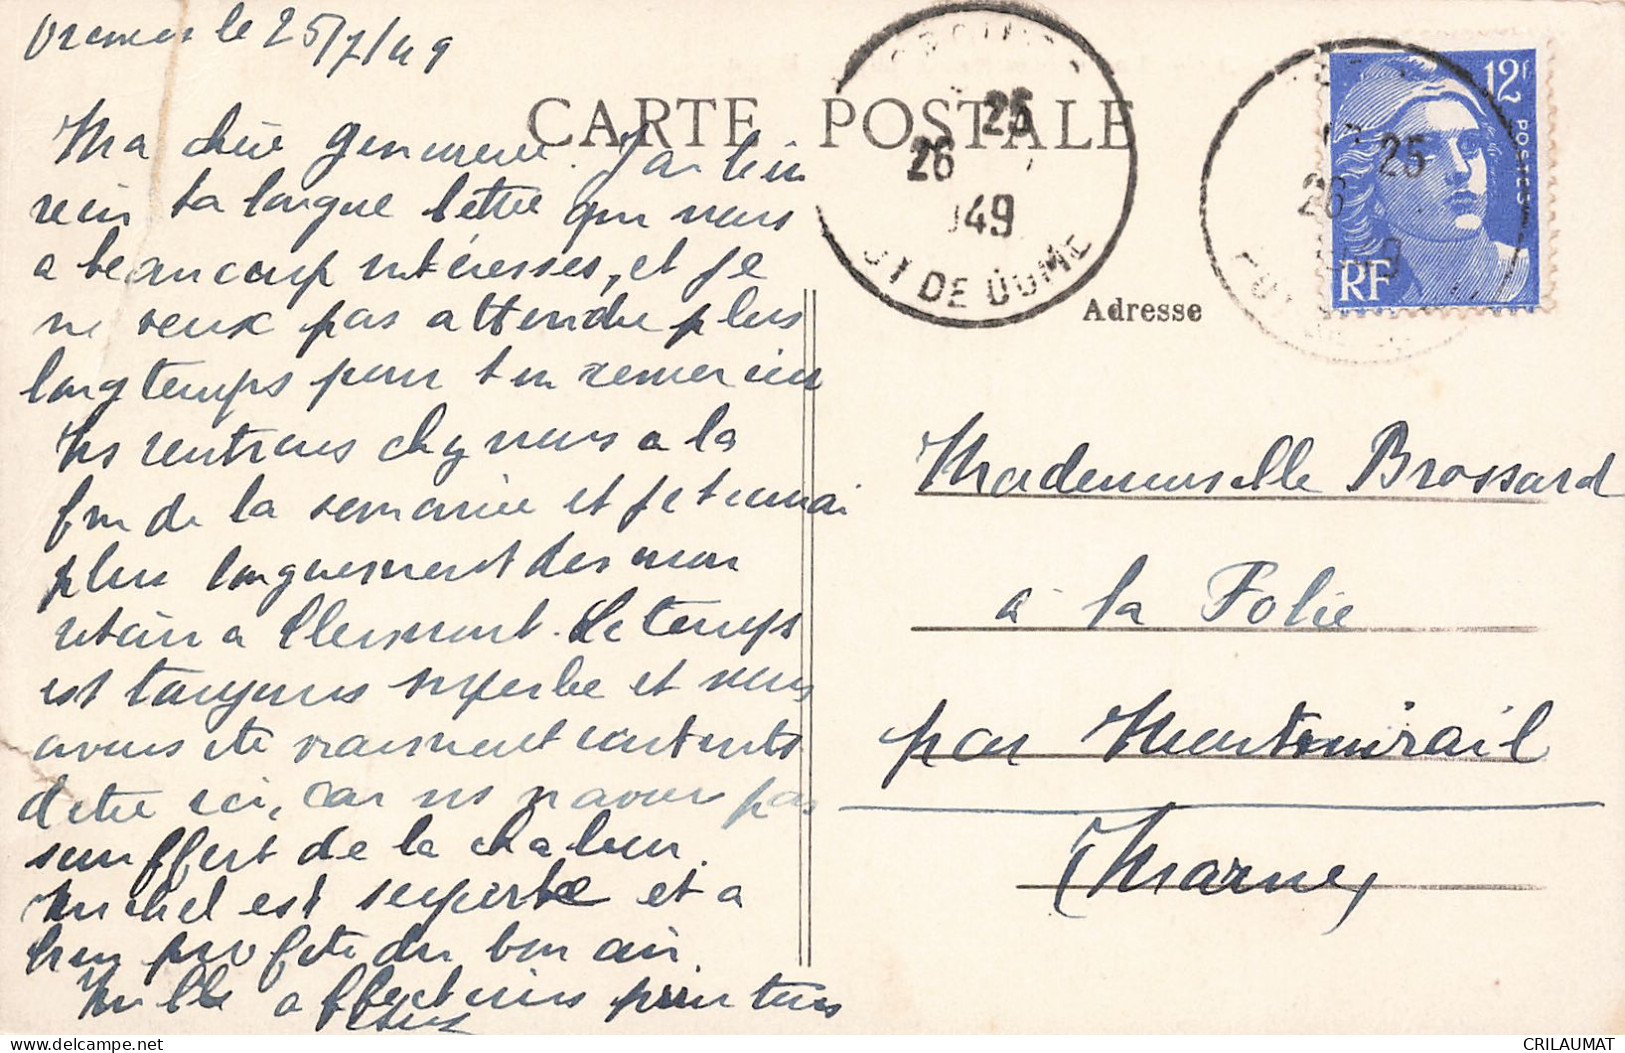 le 25/7/49
CARTE POSTALE
Ma chère Geneviève. J'ai bien
reçu ta longue lettre qui nous
a beaucoup intéressés, et je
ne veux pas attendre plus
longtemps pour t'en remercier
Ns rentrons chez nous à la
fin de la semaine et je t'écrirai
plus longuement dès mon
retour à Clermont. Le temps
est toujours superbe et nous
avons été vraiment contents
d'être ici, car ns n'avons pas
souffert de la chaleur.
Michel est superbe et a
bien profité du bon air
Mille affections pour tous
25
26
1949
PUY DE DOME
12F
POSTES
RF
25
26
Adresse
Mademoiselle Brossard
à la Folie
par Montmirail
(Marne)
delcampe.net
CRILAUMAT